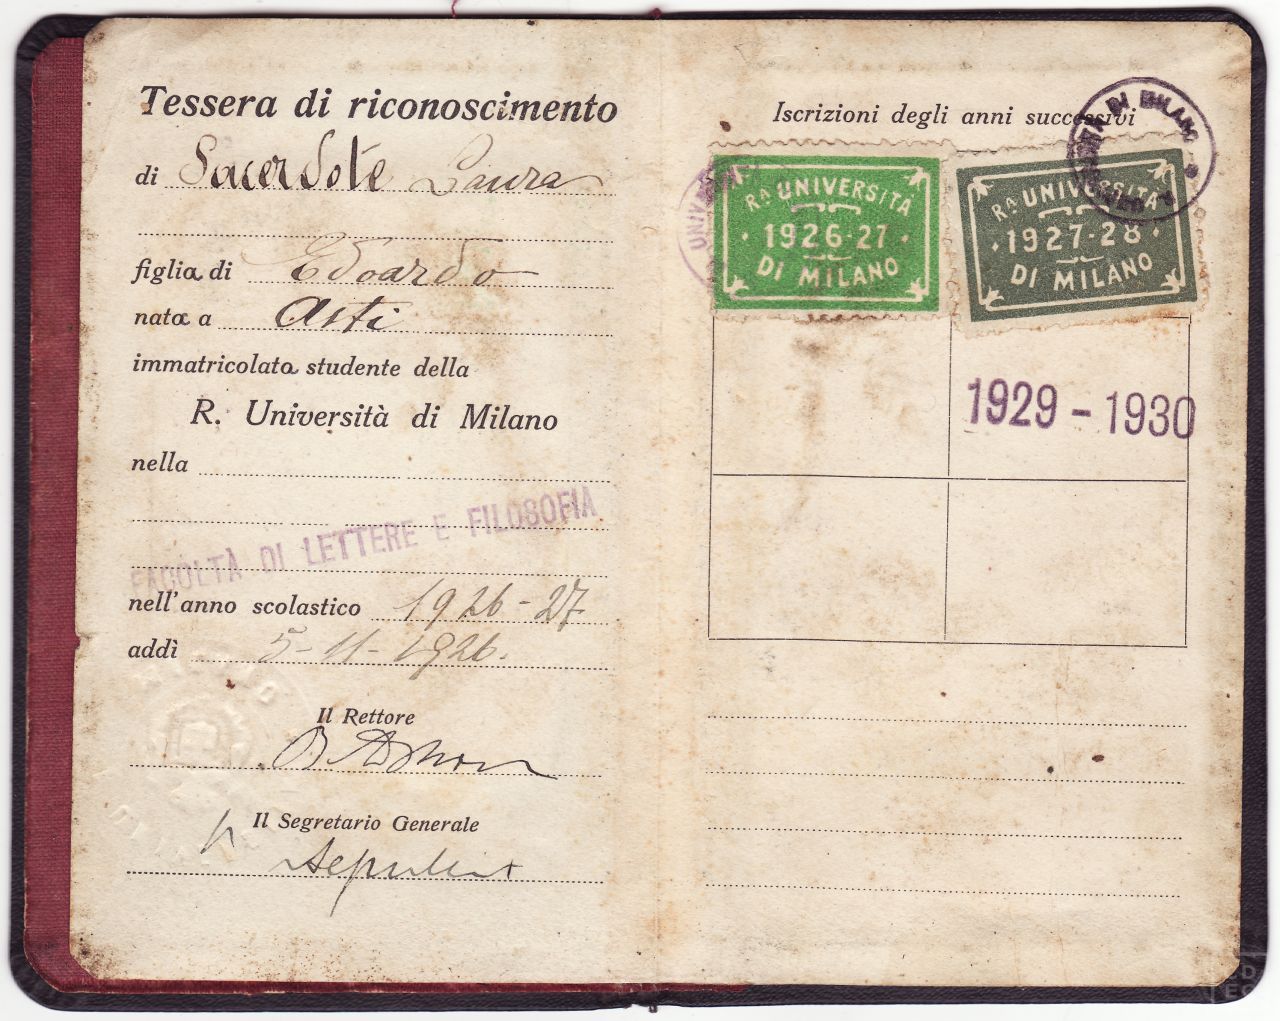 Tessera di riconoscimento
di Sacerdote Laura
figlia di Edoardo
nata a Asti
immatricolata studente della
R. Università di Milano
nella
FACOLTÀ DI LETTERE E FILOSOFIA
nell'anno scolastico 1926-27
addì 5-11-1926.
Il Rettore
Il Segretario Generale
Iscrizioni degli anni successivi
Rª UNIVERSITÀ
1926-27
DI MILANO
Rª UNIVERSITÀ
1927-28
DI MILANO
DI MILANO
1929-1930